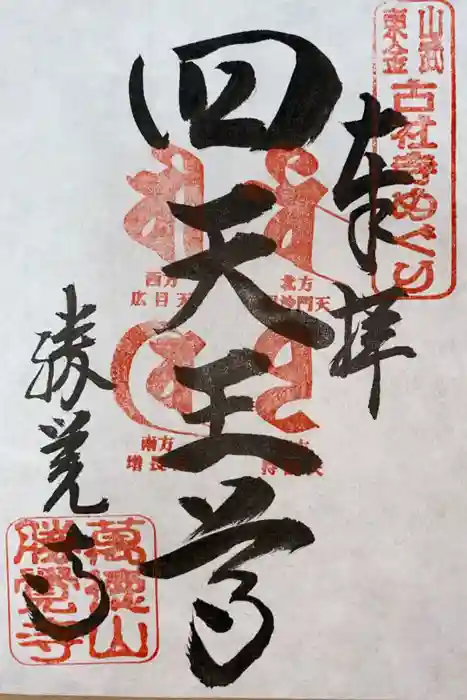 山武
東金
古社寺めぐり
奉拝
四天王尊
北方
毘沙門天
西方
広目天
南方
増長天
勝覚寺
萬徳山
勝覚寺